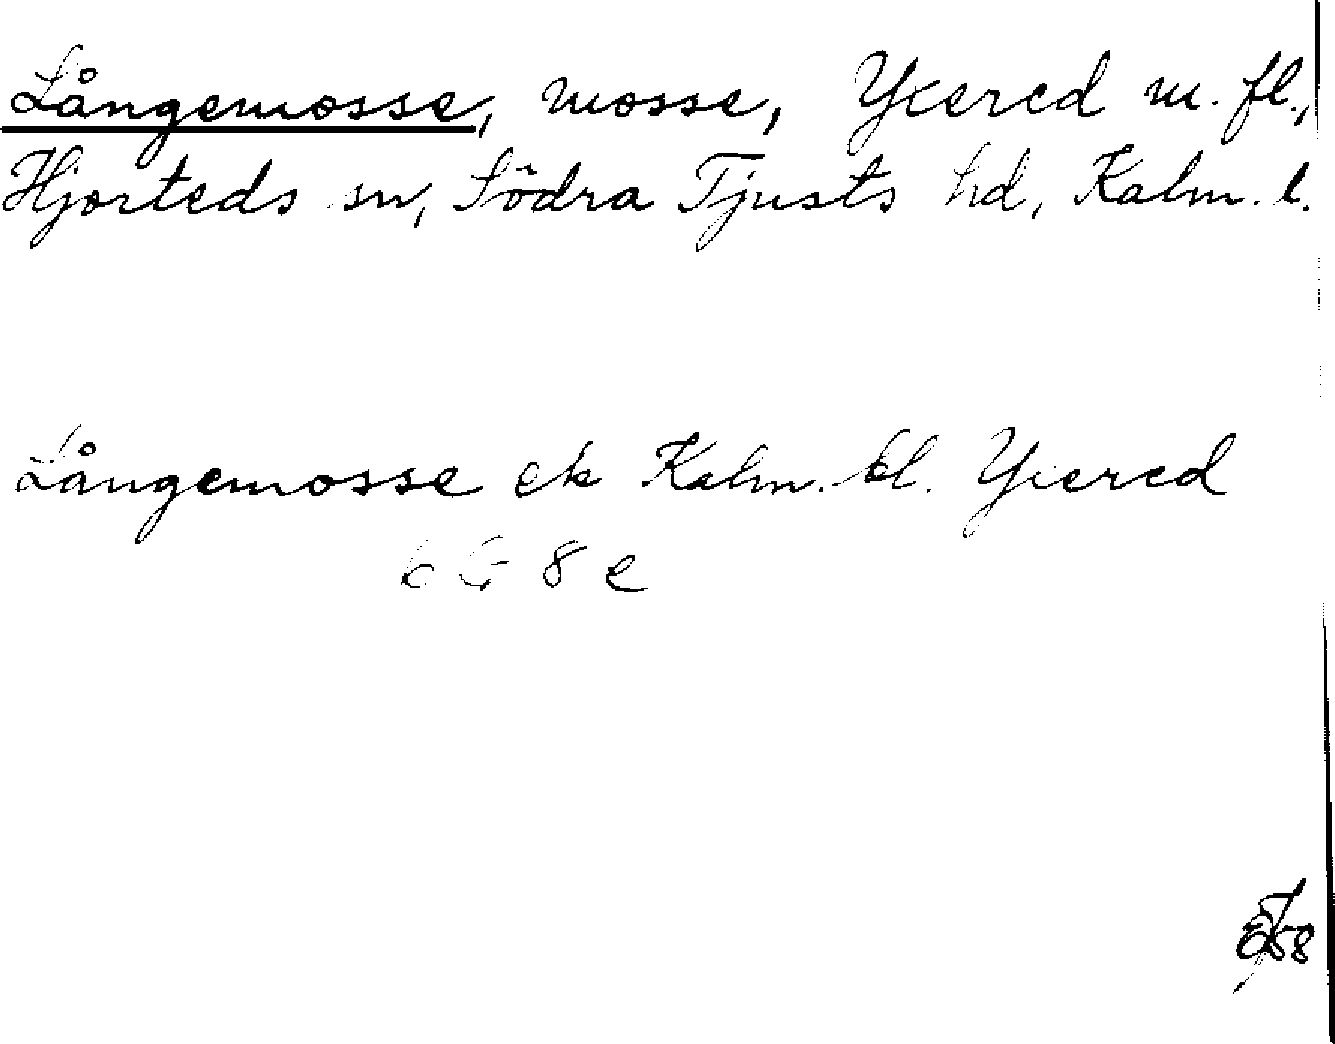 Långemosse, mosse, Yxered m. fl.,
Hjorteds sn, Södra Tjusts hd, Kalm. l.
Långemosse ek Kalm. bl. Yxered
6 G 8 e